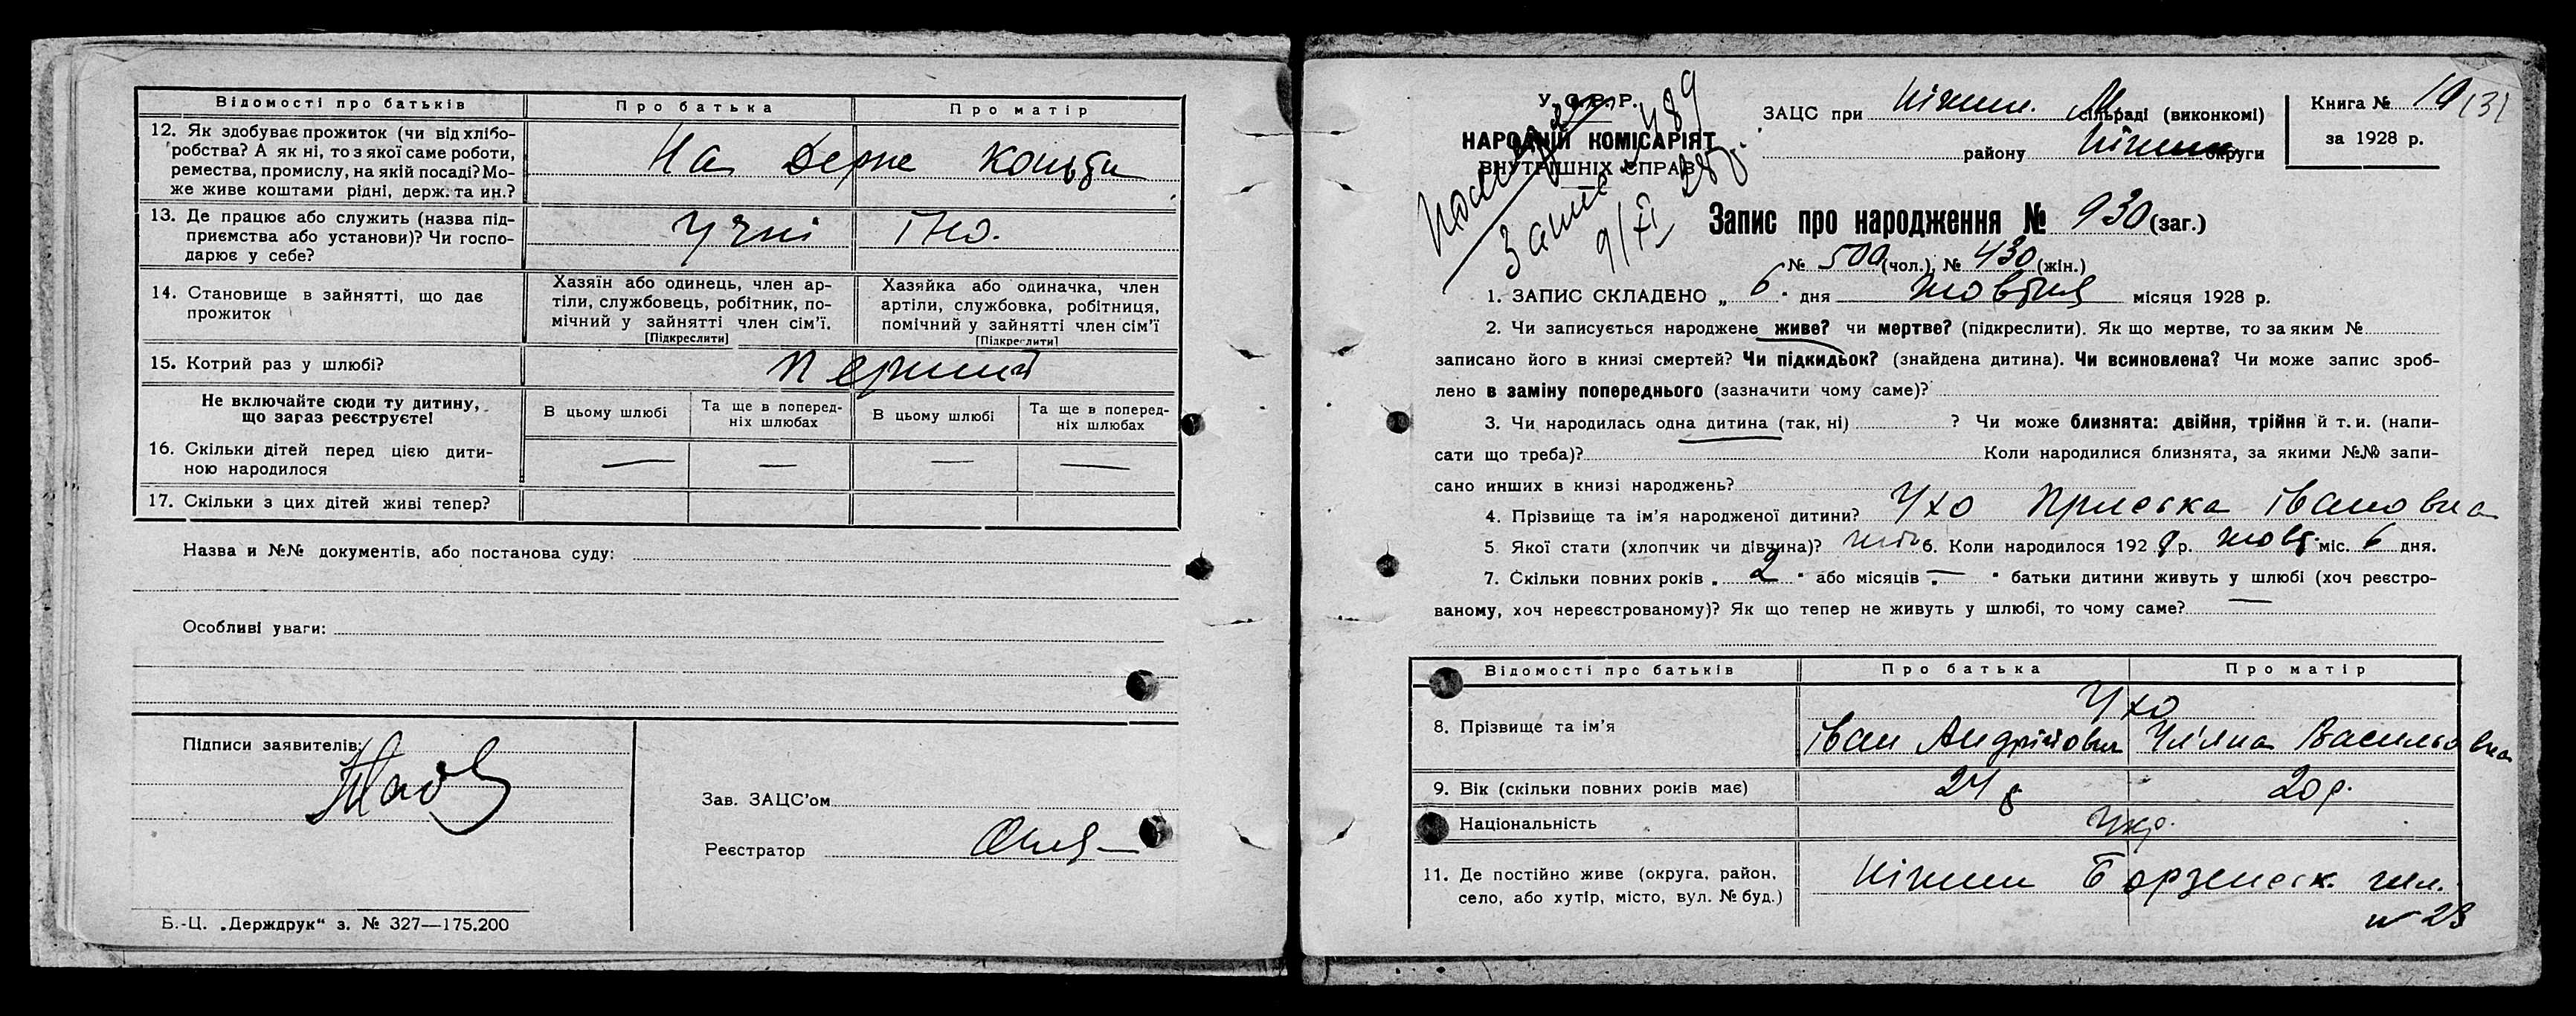 Відомості про батьків Про батька Про матір
12. Як здобуває прожиток (чи від хлібо-
робства? А як ні, то з якої саме роботи,
ремества, промислу, на якій посаді? Мо-
же живе коштами рідні, держ. та ин.?
На Держ кошти
13. Де працює або служить (назва під-
приємства або установи)? Чи госпо-
дарює у себе?
Учні ІНО.
14. Становище в зайнятті, що дає
прожиток
Хазяїн або одинець, член ар-
тіли, службовець, робітник, по-
мічний у зайнятті член сім'ї.
[Підкреслити]
Хазяйка або одиначка, член
артіли, службовка, робітниця,
помічний у зайнятті член сім'ї
[Підкреслити]
15. Котрий раз у шлюбі? перший
Не включайте сюди ту дитину,
що зараз реєструєте!
В цьому шлюбі
Та ще в поперед-
ніх шлюбах
В цьому шлюбі
Та ще в поперед-
ніх шлюбах
16. Скільки дітей перед цією дити-
ною народилося
— — — —
17. Скільки з цих дітей живі тепер?
Назва и №№ документів, або постанова суду:
Особливі уваги:
Підписи заявителів:
Зав. ЗАЦС'ом
Реєстратор
Б.-Ц. „Держдрук“ з. № 327—175.200
У. С. Р. Р.
НАРОДНІЙ КОМІСАРІЯТ
ВНУТРІШНІХ СПРАВ
489
9/XI 28 р.
ЗАЦС при Ніжин. М. сільраді (виконкомі)
району Ніжин округи
Книга № 10
131
за 1928 р.
Запис про народження № 930 (заг.)
№ 500 (чол.), № 430 (жін.)
1. ЗАПИС СКЛАДЕНО „ 6 " дня жовтня місяця 1928 р.
2. Чи записується народжене живе? чи мертве? (підкреслити). Як що мертве, то за яким №
записано його в книзі смертей? Чи підкидьок? (знайдена дитина). Чи всиновлена? Чи може запис зроб-
лено в заміну попереднього (зазначити чому саме)?
3. Чи народилась одна дитина (так, ні) ? Чи може близнята: двійня, трійня й т. и. (напи-
сати що треба)? Коли народилися близнята, за якими №№ запи-
сано инших в книзі народжень?
4. Прізвище та ім'я народженої дитини? Ухо Івановна
5. Якої стати (хлопчик чи дівчина)? 6. Коли народилося 192 8 р. жовт. міс. 6 дня.
7. Скільки повних років „ 2 " або місяців „ — " батьки дитини живуть у шлюбі (хоч реєстро-
ваному, хоч нереєстрованому)? Як що тепер не живуть у шлюбі, то чому саме? —
Відомості про батьків Про батька Про матір
8. Прізвище та ім'я
Ухо
Іван Андрійович Ул'яна Васильовна
9. Вік (скільки повних років має) 24 р. 20 р.
Національність Укр.
11. Де постійно живе (округа, район,
село, або хутір, місто, вул. № буд.)
Ніжин Борзенськ. шл.
№ 23